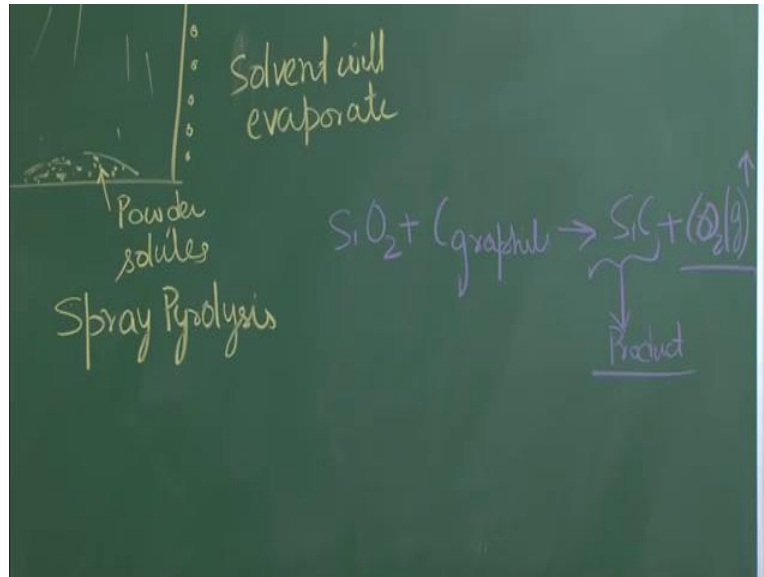 Solvent will
evaporate
Powder
solutes
Spray Pyrolysis
SiO₂ + C graphite → SiC + CO₂(g) ↑
Product